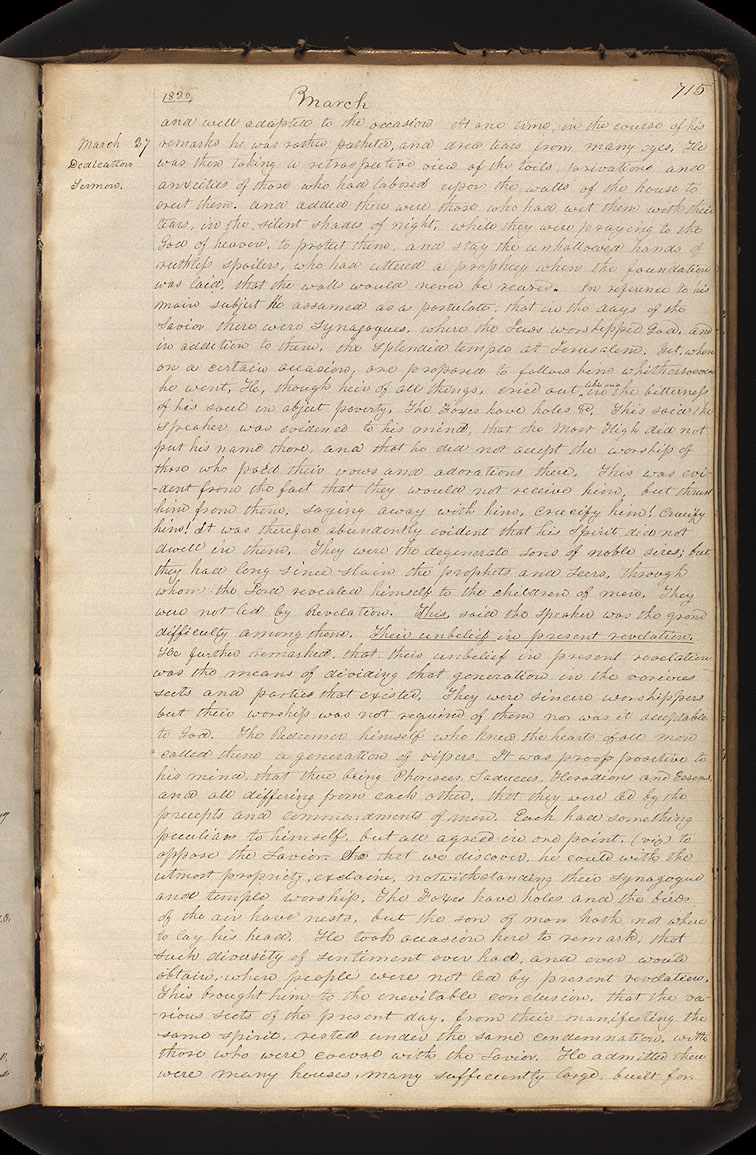 1836. March 715
and well adapted to the occasion. At one time, in the course of his
March 27 remarks he was rather pathetic, and drew tears from many eyes. He
Dedication was then taking a retrospective view of the toils, privations and
Sermon. anxieties of those who had labored upon the walls of the house to
erect them. and added there were those who had wet them with their
tears, in the silent shades of night, while they were praying to the
God of heaven, to protect them, and stay the unhallowed hands of
ruthless spoilers, who had uttered a prophecy when the foundation
was laid, that the walls would never be reared. In reference to his
main subject He assumed as a postulate, that in the days of the
Savior there were Synagogues, where the Jews worshipped God, and
in addition to them, the splendid temple at Jerusalem. Yet, when
on a certain occasion, one proposed to follow him whithersoever
he went, He, though heir of all things, cried out like one in the bitterness
of his soul in abject poverty, The Foxes have holes &c. This said the
speaker was evidence to his mind, that the Most High did not
put his name there, and that he did not accept the worship of
those who paid their vows and adorations there. This was evi-
-dent from the fact that they would not receive him, but thrust
him from them, saying away with him, crucify him! crucify
him! It was therefore abundently evident that his Spirit did not
dwell in them, They were the degenerate sons of noble sires; but
they had long since slain the prophets and Seers, through
whom the Lord revealed himself to the children of men. They
were not led by Revelation. This, said the speaker was the grand
difficulty among them. Their unbelief in present revelation.
He further remarked, that, their unbelief in present revelation
was the means of dividing that generation in the various
sects and parties that existed. They were sincere worshippers
but their worship was not required of them nor was it acceptable
to God. The Redeemer himself who knew the hearts of all men
called them a generation of vipers. It was proof positive to
his mind, that there being Pharisees, Saducees, Herodions and Essens,
and all differing from each other, that they were led by the
precepts and commandments of men. Each had something
peculiar to himself, but all agreed in one point, (viz) to
oppose the Savior. So that we discover, he could with the
utmost propriety, exclaim, notwithstanding their synagogue
and temple worship, The Foxes have holes and the birds
of the air have nests, but the son of man hath not where
to lay his head. He took occasion here to remark, that
such diversity of sentiment ever had, and ever would
obtain, where people were not led by present revelation.
This brought him to the inevitable conclusion, that the va-
-rious sects of the present day, from their manifesting the
same spirit, rested under the same condemnation, with
those who were coeval with the Savior. He admitted there
were many houses, many sufficiently large, built for